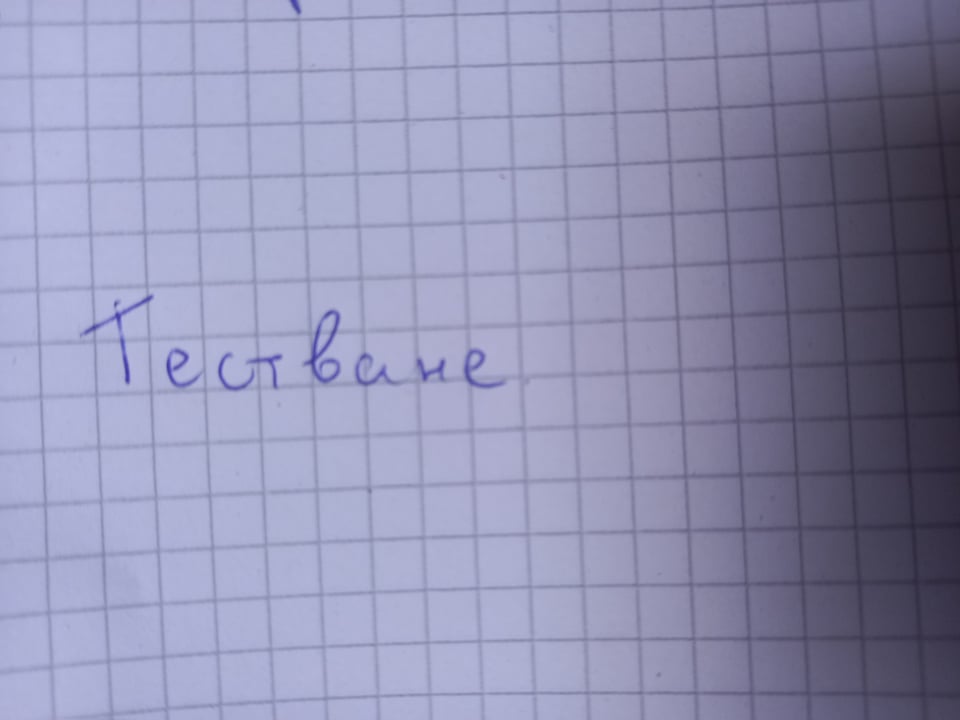 Тестване